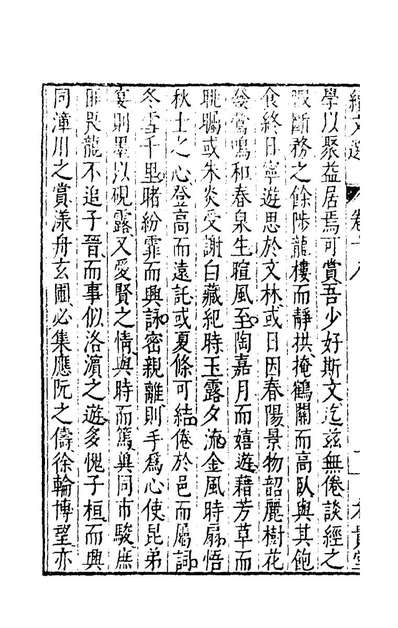 續文選 卷十八
學以聚益居焉可賞吾少好斯文迄茲無倦談經之
暇斷務之餘陟龍樓而靜拱掩鶴關而高臥與其飽
食終日寧遊思於文林或日因春陽景物韶麗樹花
發鶯鳴和春泉生暄風至陶嘉月而嬉遊藉芳草而
眺矚或朱炎受謝白藏紀時玉露夕流金風時扇悟
秋士之心登高而遠託或夏條可結倦於邑而屬詞
冬雪千里睹紛霏而興詠密親離則手爲心使昆弟
宴則墨以硯露又愛賢之情與時而篤冀同市駿庶
匪畏龍不追子晉而事似洛濱之遊多愧子桓而興
同漳川之賞漾舟玄圃必集應阮之儔徐輪博望亦